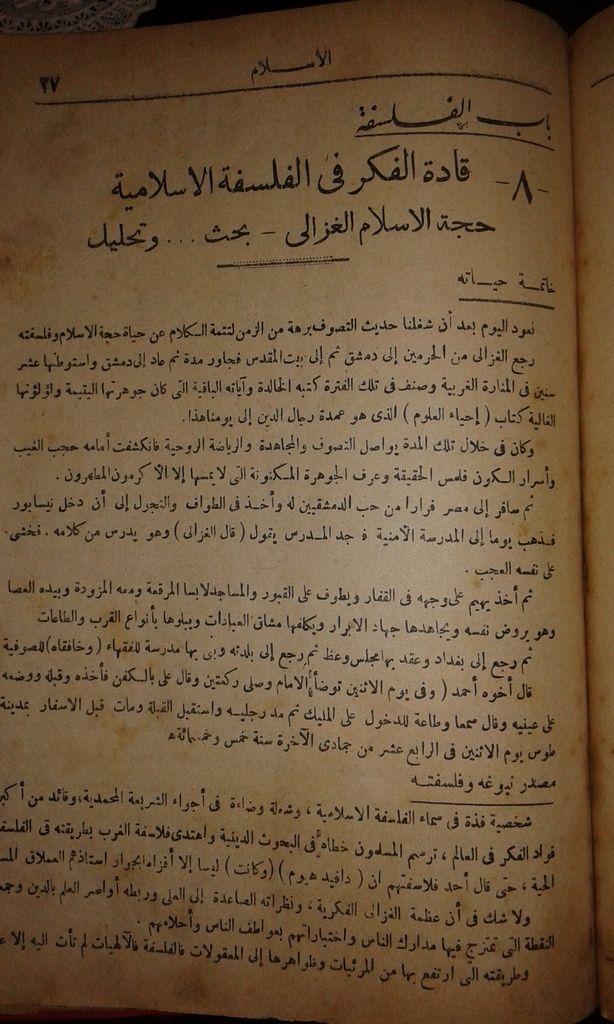 الأسلام
٣٧
باب الفلسفة
-٨- قادة الفكر فى الفلسفة الاسلامية
حجة الاسلام الغزالى - بحث ... وتحليل
خاتمة حياته
نعود اليوم بعد أن شغلنا حديث التصوف برهة من الزمن لتتمة الكلام عن حياة حجة الاسلام وفلسفته
رجع الغزالى من الحرمين إلى دمشق ثم إلى بيت المقدس فجاور مدة ثم عاد إلى دمشق واستوطنها عشر
سنين فى المنارة الغربية وصنف فى تلك الفترة كتبه الخالدة وآياته الباقية التى كان جوهرتها اليتيمة ولؤلؤتها
الغالية كتاب ( إحياء العلوم ) الذى هو عمدة رجال الدين إلى يومنا هذا .
وكان فى خلال تلك المدة يواصل التصوف والمجاهدة والرياضة الروحية فانكشفت أمامه حجب الغيب
وأسرار الكون فلمس الحقيقة وعرف الجوهرة المكنونة التى لا يمسها إلا الأكرمون المطهرون .
ثم سافر إلى مصر فرارا من حب الدمشقيين له وأخذ فى الطواف والتجول إلى أن دخل نيسابور
فذهب يوما إلى المدرسة الأمنية فوجد المدرس يقول ( قال الغزالى ) وهو يدرس من كلامه . فخشى
على نفسه العجب .
ثم أخذ يهيم على وجهه فى القفار ويطوف على القبور والمساجد لابسا المرقعة ومعه المزودة وبيده العصا
وهو يروض نفسه ويجاهدها جهاد الابرار ويكلفها مشاق العبادات ويبلوها بأنواع القرب والطاعات
ثم رجع إلى بغداد وعقد بها مجلس وعظ ثم رجع إلى بلدته وبنى بها مدرسة للفقهاء ( وخافقاه ) للصوفية
قال أخوه أحمد ( وفى يوم الاثنين توضأ الامام وصلى ركعتين وقال على بالكفن فأخذه وقبله ووضعه
على عينيه وقال سمعا وطاعة للدخول على المليك ثم مد رجليه واستقبل القبلة ومات قبل الاسفار بمدينة
طوس يوم الاثنين فى الرابع عشر من جمادى الآخرة سنة خمس وخمسمائة
مصدر نبوغه وفلسفته
شخصية فذة فى سماء الفلسفة الاسلامية ، وشعلة وضاءة فى أجواء الشريعة المحمدية، وقائد من أكبر
قواد الفكر فى العالم ، ترسم المسلمون خطاه فى البحوث الدينية واهتدى فلاسفة الغرب بطريقته فى
الحية ، حتى قال أحد فلاسفتهم ان ( دافيد هيوم ) ( وكانت ) ليسا إلا أقزاما بجوار استاذهم العملاق
ولا شك فى أن عظمة الغزالى الفكرية ، ونظراته الصاعدة إلى العلى وربطه أواصر العلم بالدين
النقطة التى تمتزج فيها مدارك الناس واختباراتهم بعواطف الناس وأحلامهم .
وطريقته التى ارتفع بها من المرئيات وظواهرها إلى المعقولات فالفلسفة فالآلهيات لم تأت اليه إلا